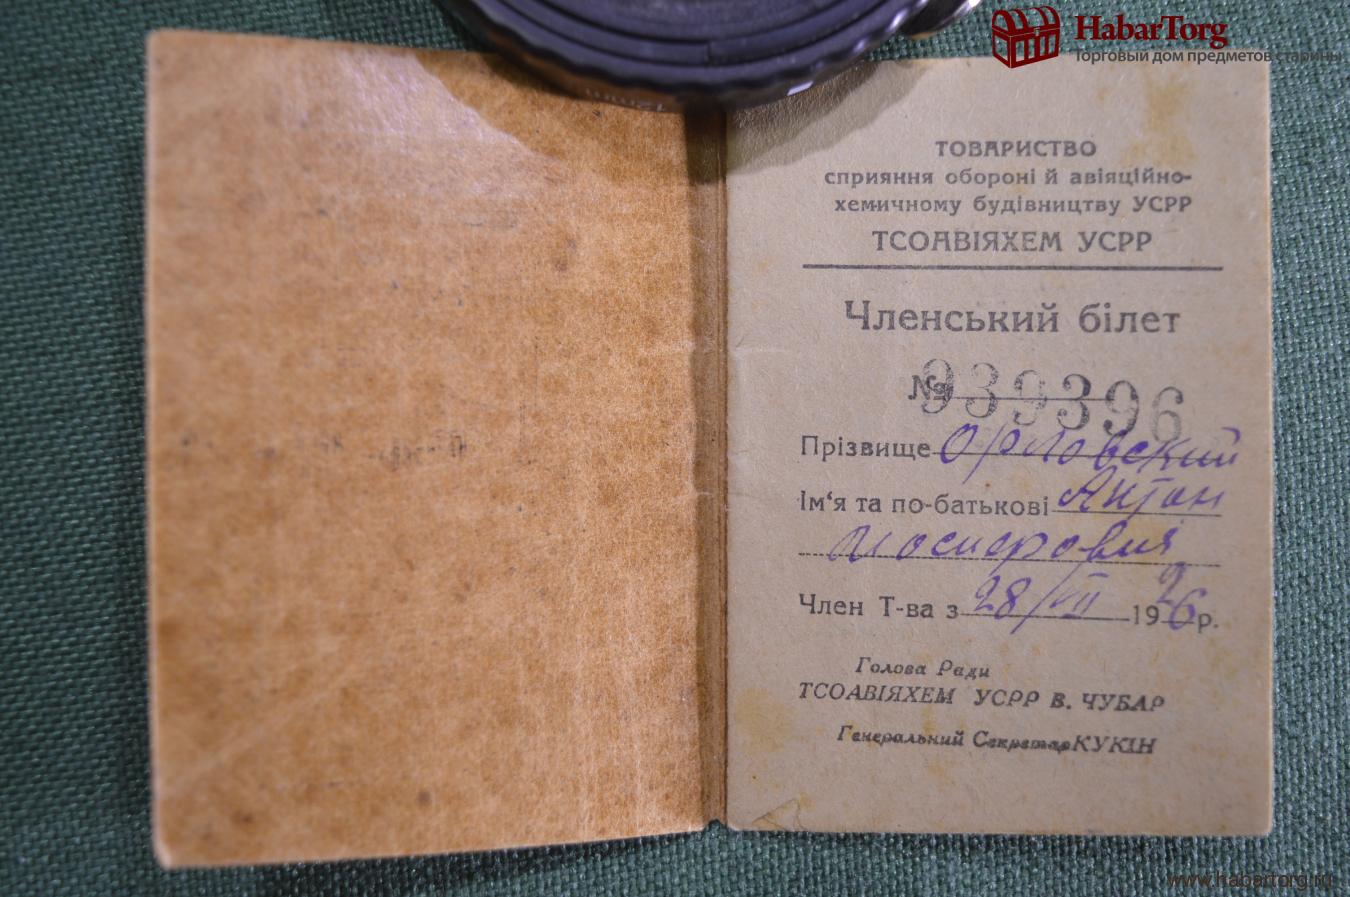 HabarTorg
Торговый дом предметов старины
ТОВАРИСТВО
сприяння обороні й авіяційно-
хемичному будівництву УСРР
ТСОАВІЯХЕМ УСРР
Членський білет
№ 939396
Прізвище Орловский
Ім'я та по-батькові Антон
Иосифович
Член Т-ва з 28/VII 1926 р.
Голова Ради
ТСОАВІЯХЕМ УСРР В. ЧУБАР
Генеральний Секретар КУКІН
www.habartorg.ru